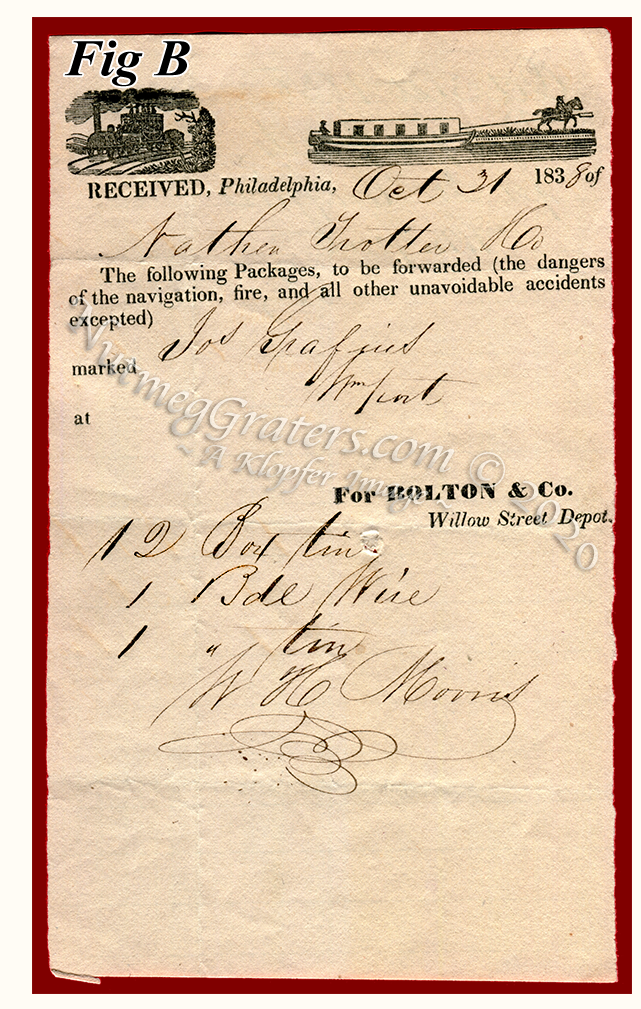 Fig B
RECEIVED, Philadelphia, Oct 31 1838 of
Nathen Trotter & Co
The following Packages, to be forwarded (the dangers
of the navigation, fire, and all other unavoidable accidents
excepted)
marked Jos Grafius
Wmport
at
NutmegGraters.com © 2020
~ A Klopfer Image ~
For BOLTON & Co.
Willow Street Depot.
12 Box tin
1 Bdl Wire
1 " tin
W H Morris